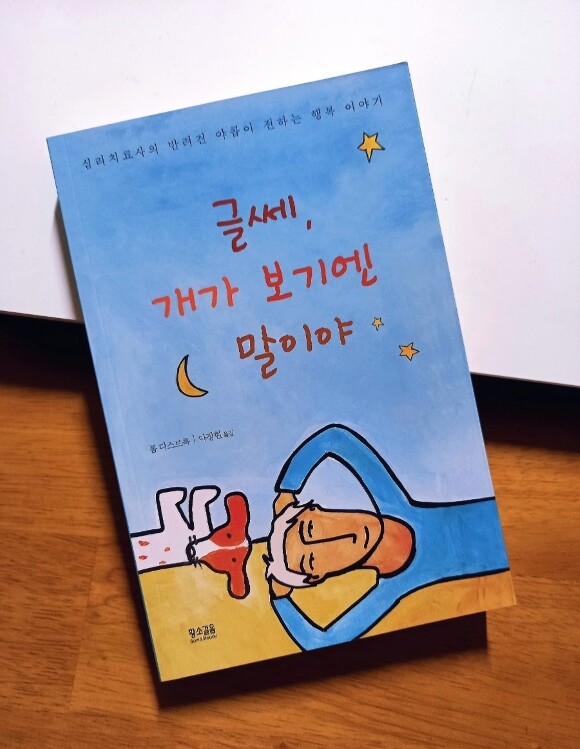 심리치료사의 반려견 아롬이 전하는 행복 이야기
글쎄,
개가 보기엔
말이야
톰 디스브록 | 이광헌 옮김
황소걸음
Slow & Steady